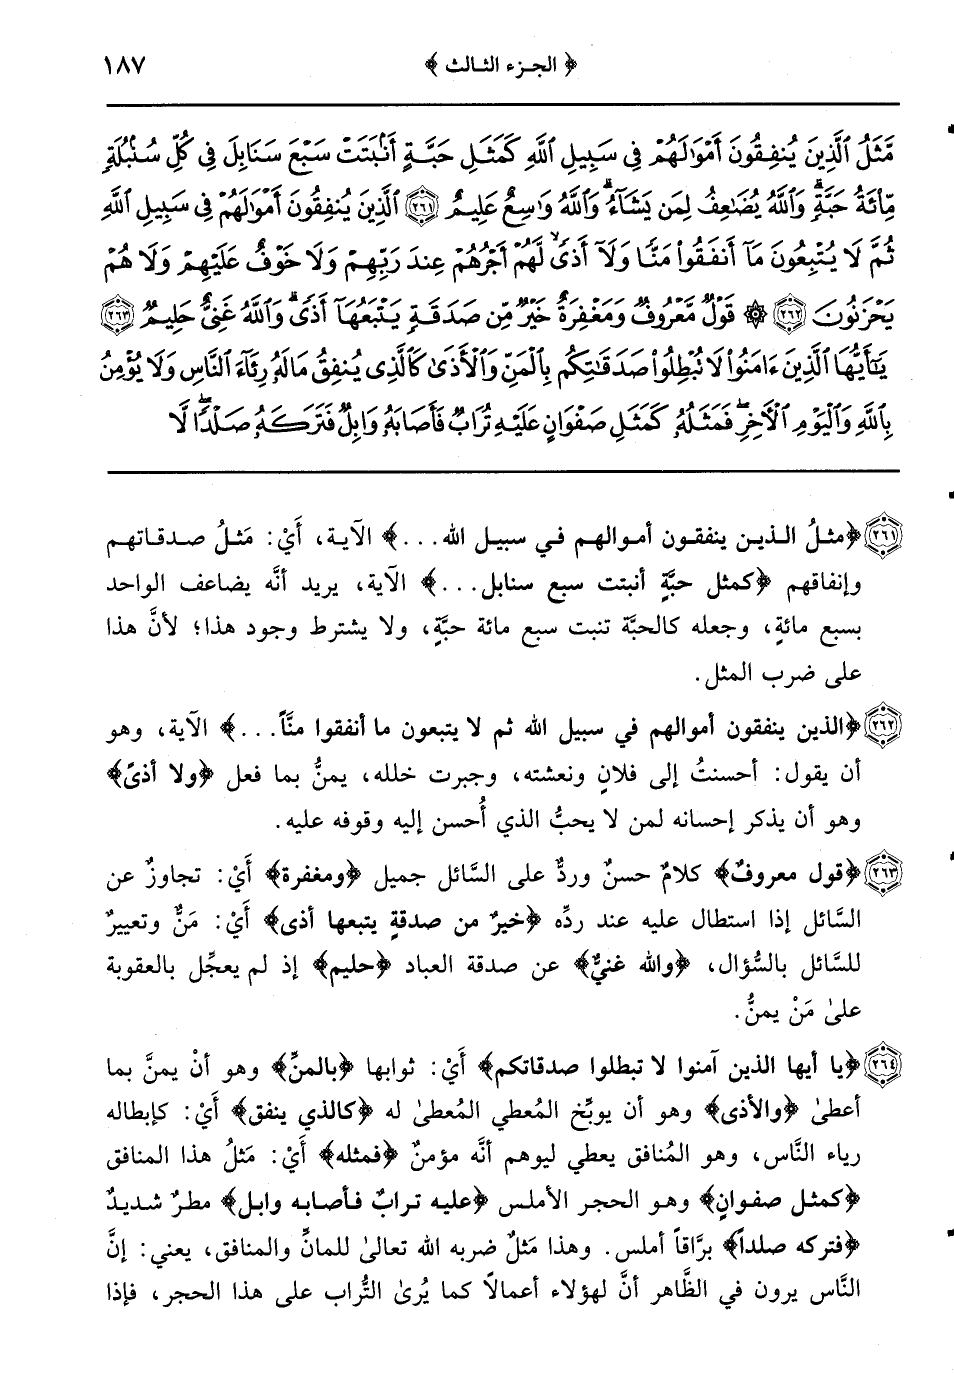 ﴿ الجزء الثالث ﴾ ١٨٧
مَّثَلُ ٱلَّذِينَ يُنفِقُونَ أَمْوَٰلَهُمْ فِى سَبِيلِ ٱللَّهِ كَمَثَلِ حَبَّةٍ أَنۢبَتَتْ سَبْعَ سَنَابِلَ فِى كُلِّ سُنۢبُلَةٍ
مِّا۟ئَةُ حَبَّةٍ ۗ وَٱللَّهُ يُضَٰعِفُ لِمَن يَشَآءُ ۗ وَٱللَّهُ وَٰسِعٌ عَلِيمٌ ﴿٢٦١﴾ ٱلَّذِينَ يُنفِقُونَ أَمْوَٰلَهُمْ فِى سَبِيلِ ٱللَّهِ
ثُمَّ لَا يُتْبِعُونَ مَآ أَنفَقُوا۟ مَنًّا وَلَآ أَذًى ۙ لَّهُمْ أَجْرُهُمْ عِندَ رَبِّهِمْ وَلَا خَوْفٌ عَلَيْهِمْ وَلَا هُمْ
يَحْزَنُونَ ﴿٢٦٢﴾ ۞ قَوْلٌ مَّعْرُوفٌ وَمَغْفِرَةٌ خَيْرٌ مِّن صَدَقَةٍ يَتْبَعُهَآ أَذًى ۗ وَٱللَّهُ غَنِىٌّ حَلِيمٌ ﴿٢٦٣﴾
يَٰٓأَيُّهَا ٱلَّذِينَ ءَامَنُوا۟ لَا تُبْطِلُوا۟ صَدَقَٰتِكُم بِٱلْمَنِّ وَٱلْأَذَىٰ كَٱلَّذِى يُنفِقُ مَالَهُۥ رِئَآءَ ٱلنَّاسِ وَلَا يُؤْمِنُ
بِٱللَّهِ وَٱلْيَوْمِ ٱلْأَخِرِ ۖ فَمَثَلُهُۥ كَمَثَلِ صَفْوَانٍ عَلَيْهِ تُرَابٌ فَأَصَابَهُۥ وَابِلٌ فَتَرَكَهُۥ صَلْدًا ۖ لَّا
﴿٢٦١﴾ ﴿مثلُ الذين ينفقون أموالهم في سبيل الله ...﴾ الآية، أَيْ: مَثلُ صدقاتهم
وإنفاقهم ﴿كمثل حبَّةٍ أنبتت سبع سنابل...﴾ الآية، يريد أنَّه يضاعف الواحد
بسبع مائةٍ، وجعله كالحبَّة تنبت سبع مائة حبَّةٍ، ولا يشترط وجود هذا؛ لأنَّ هذا
على ضرب المثل.
﴿٢٦٢﴾ ﴿الذين ينفقون أموالهم في سبيل الله ثم لا يتبعون ما أنفقوا منَّاً...﴾ الآية، وهو
أن يقول: أحسنتُ إلى فلانٍ ونعشته، وجبرت خلله، يمنُّ بما فعل ﴿ولا أذىً﴾
وهو أن يذكر إحسانه لمن لا يحبُّ الذي أُحسن إليه وقوفه عليه.
﴿٢٦٣﴾ ﴿قول معروفٌ﴾ كلامٌ حسنٌ وردٌّ على السَّائل جميل ﴿ومغفرة﴾ أَيْ: تجاوزٌ عن
السَّائل إذا استطال عليه عند ردِّه ﴿خيرٌ من صدقةٍ يتبعها أذى﴾ أَيْ: مَنٌّ وتعييرٌ
للسَّائل بالسُّؤال، ﴿والله غنيٌّ﴾ عن صدقة العباد ﴿حليم﴾ إذ لم يعجِّل بالعقوبة
علىٰ مَنْ يمنُّ.
﴿٢٦٤﴾ ﴿يا أيها الذين آمنوا لا تبطلوا صدقاتكم﴾ أَيْ: ثوابها ﴿بالمنِّ﴾ وهو أنْ يمنَّ بما
أعطىٰ ﴿والأذى﴾ وهو أن يوبِّخ المُعطي المُعطىٰ له ﴿كالذي ينفق﴾ أَيْ: كإبطاله
رياء النَّاس، وهو المُنافق يعطي ليوهم أنَّه مؤمنٌ ﴿فمثله﴾ أَيْ: مَثلُ هذا المنافق
﴿كمثل صفوانٍ﴾ وهو الحجر الأملس ﴿عليه ترابٌ فأصابه وابل﴾ مطرٌ شديدٌ
﴿فتركه صلداً﴾ برَّاقاً أملس. وهذا مَثلٌ ضربه الله تعالىٰ للمانِّ والمنافق، يعني: إنَّ
النَّاس يرون في الظَّاهر أنَّ لهؤلاء أعمالاً كما يُرىٰ التُّراب على هذا الحجر، فإذا